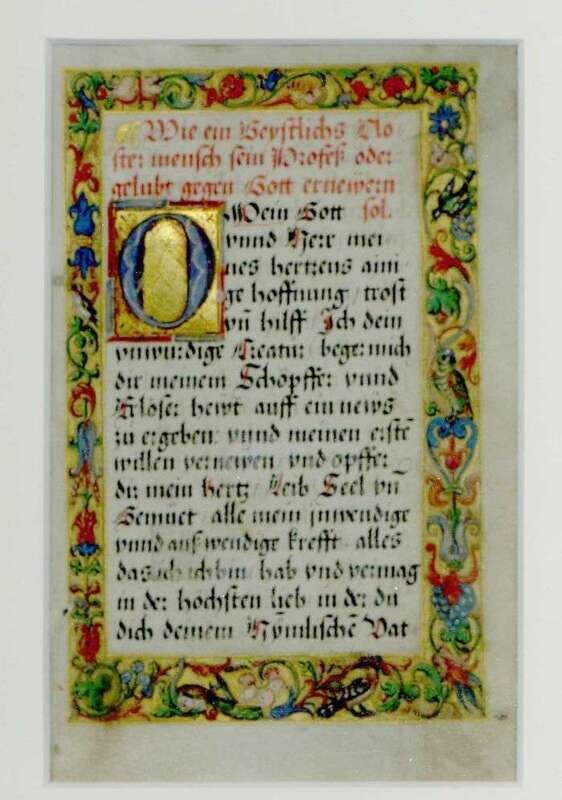 Wie ein Geystlichs Clo
ster mensch sein Profeß oder
gelubt gegen Gott ernewern
O Mein Gott sol.
vnnd Herr mei
nes hertzens aini
ge hoffnung / trost
vñ hilff Ich dein
vnwurdige Creatur / beger mich
dir meinem Schopffer vnnd
Erlöser hewt auff ein news
zu ergeben vnnd meinen erstē
willen vernewen vnd opffer
dir mein hertz / Leib Seel vñ
Gemuet / alle mein jnwendige
vnnd außwendige krefft alles
das ich bin / hab vnd vermag
in der hochsten lieb in der du
dich deinem Hymlischē Vat